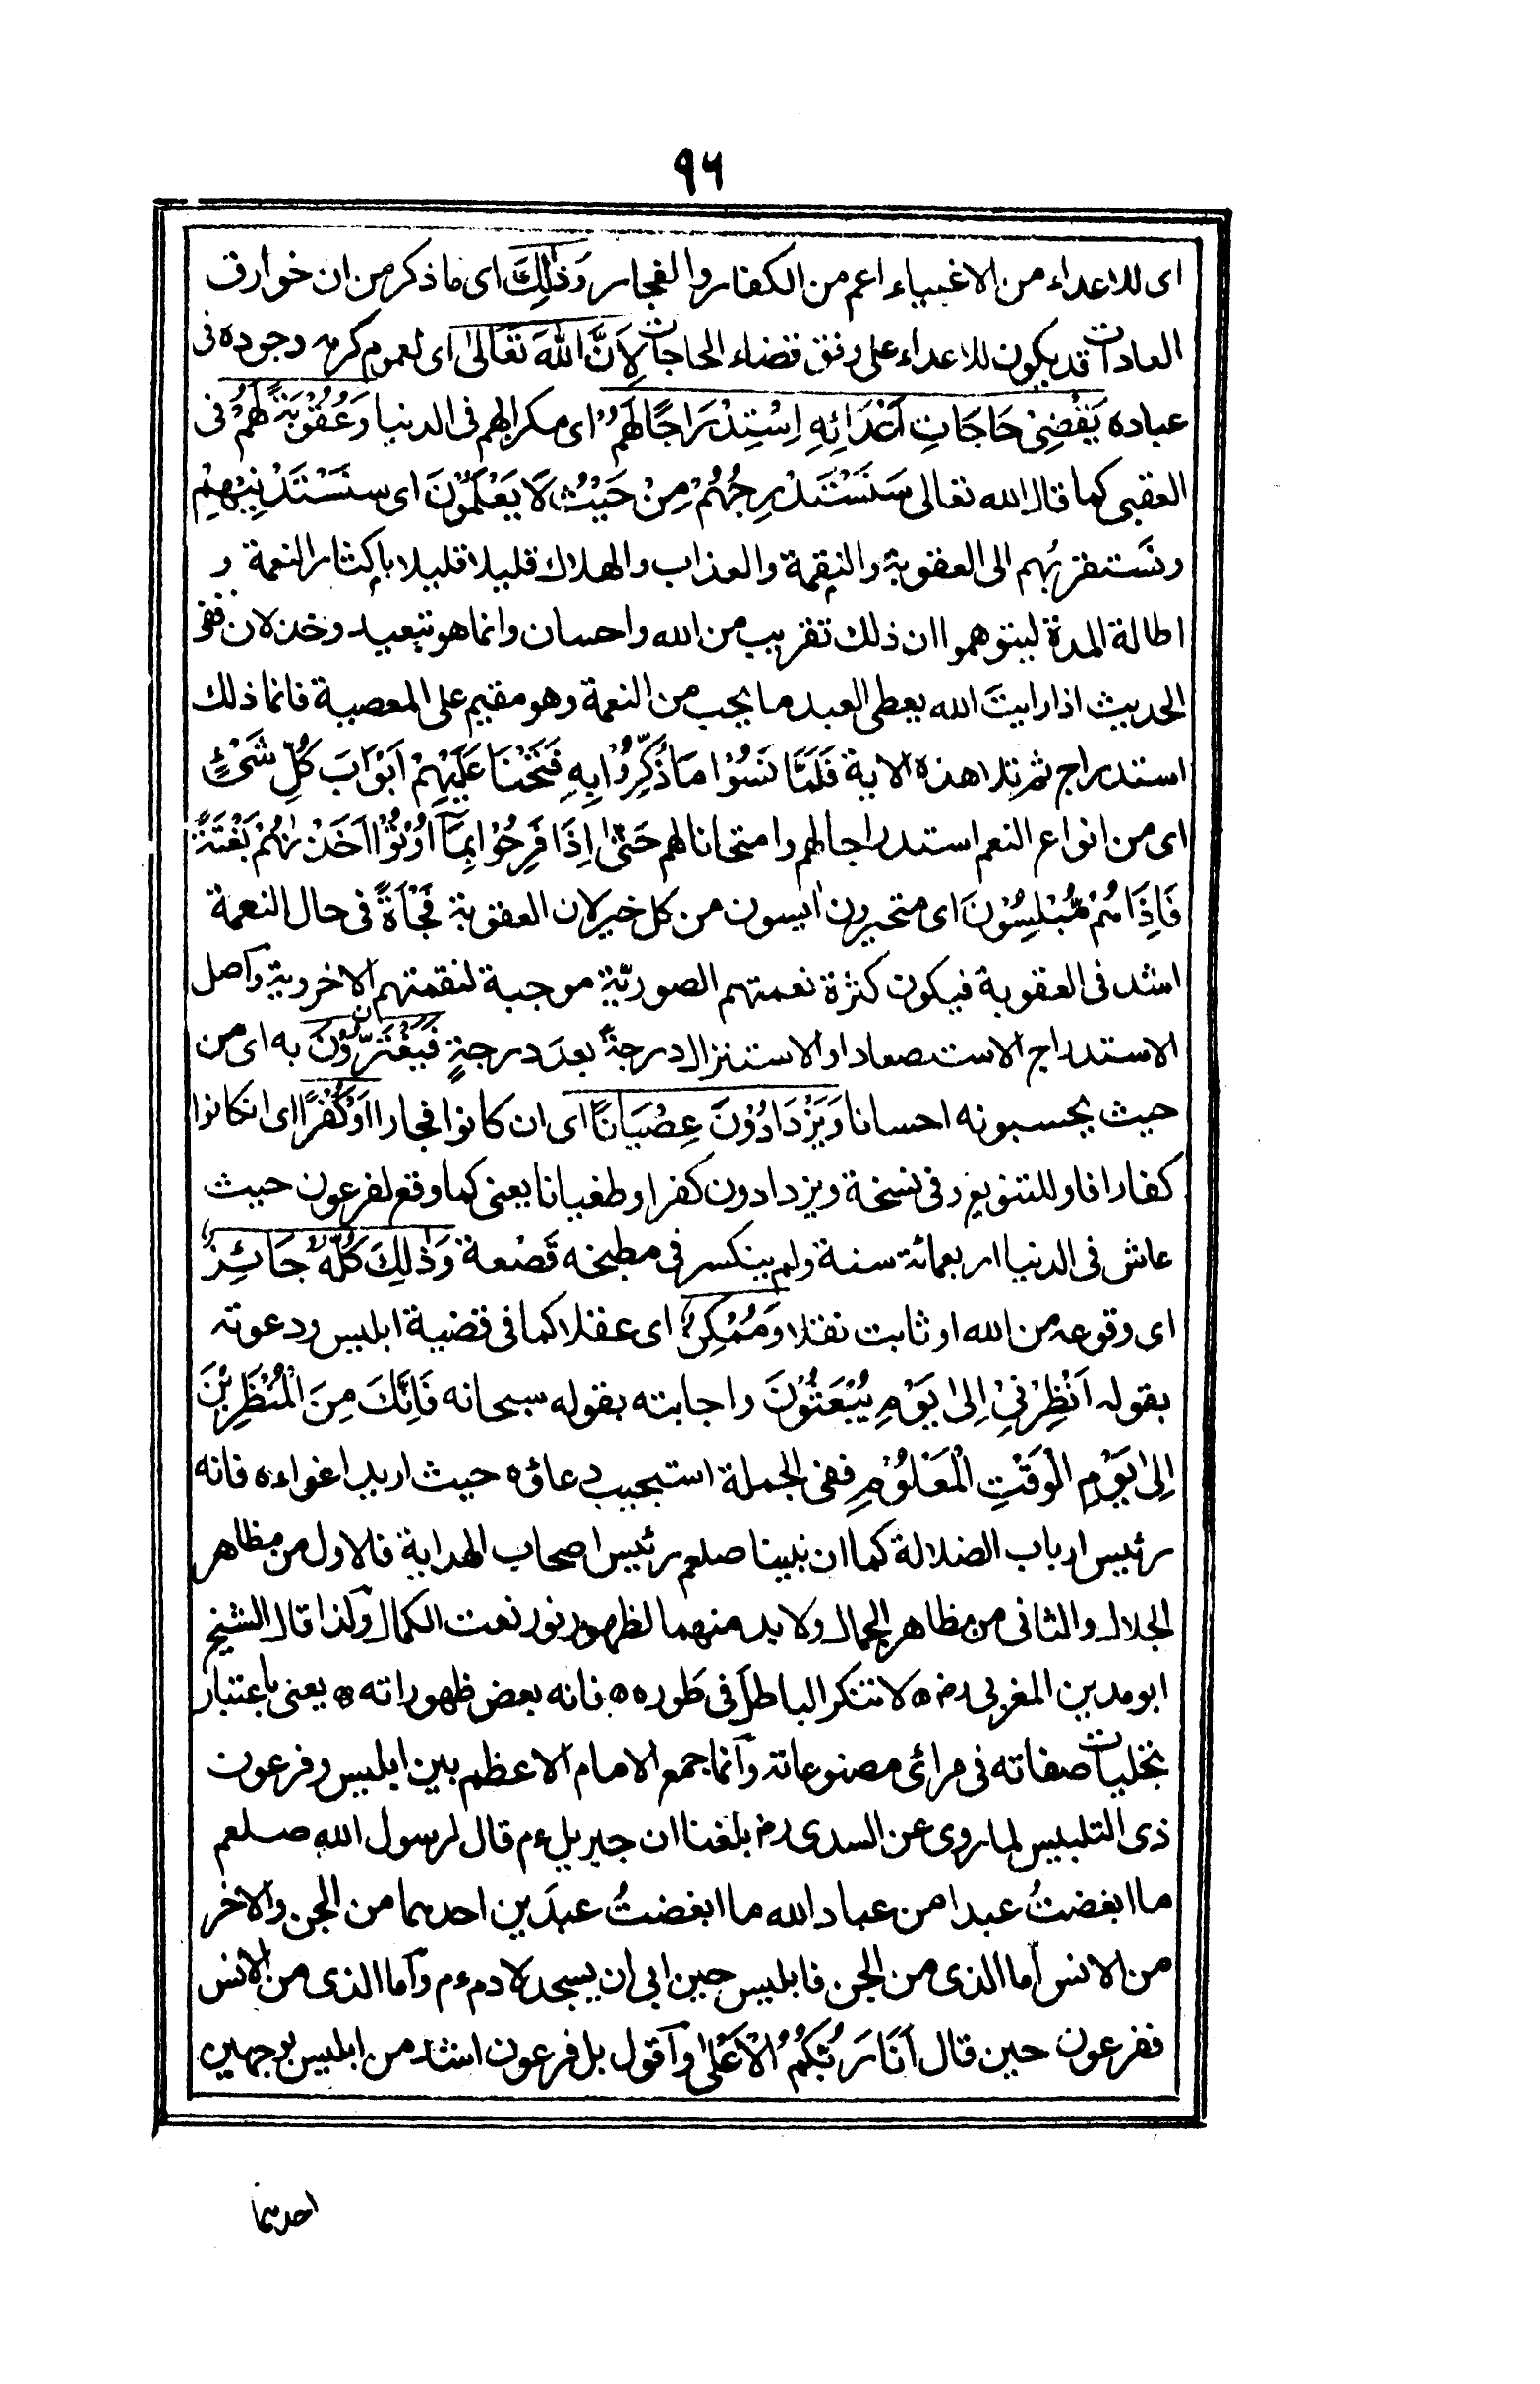 ٩٦
اى للاعداء من الاغبياء اعم من الكفار والفجار وَذٰلِكَ اى ما ذكر من ان خوارق
العادات قد يكون للاعداء على وفق قضاء الحاجات لِاَنَّ اللّٰهَ تَعَالىٰ اى لعموم كرمه وجوده فى
عباده يَقْضِىْ حَاجَاتِ اَعْدَائِهِ اِسْتِدْرَاجًا لَهُمْ اى مكرا لهم فى الدنيا وَعُقُوْبَةً لَهُمْ فى
العقبى كما قال الله تعالى سَنَسْتَدْرِجُهُمْ مِنْ حَيْثُ لَا يَعْلَمُوْنَ اى سنَسْتَدْنِيْهِمْ
ونَستقرِبُهم الى العقوبة والنِقمة والعذاب والهلاك قليلا قليلا بإكثار النعمة و
اطالة المدة ليتوهموا ان ذلك تقريب من الله واحسان وانما هو تبعيد وخذلان ففى
الحديث اذا رايتَ الله يعطى العبد ما يحب من النعمة وهو مقيم على المعصية فانما ذلك
استدراج ثم تلا هذه الاية فَلَمَّا نَسُوْا مَا ذُكِّرُوْا بِهِ فَتَحْنَا عَلَيْهِمْ اَبْوَابَ كُلِّ شَىْءٍ
اى من انواع النعم استدراجا لهم وامتحانا لهم حَتّٰى اِذَا فَرِحُوْا بِمَا اُوْتُوْا اَخَذْنٰهُمْ بَغْتَةً
فَاِذَا هُمْ مُّبْلِسُوْنَ اى متحيرون اٰيسون من كل خير لان العقوبة فَجْأَةً فى حال النعمة
اشد فى العقوبة فيكون كثرة نعمتهم الصوريّة موجبة لنقمتهم الاخروية وآصل
الاستدراج الاستصعاد او الاستنزال درجةً بعدَ درجةٍ فَيَغْتَرُّوْنَ به اى من
حيث يحسبونه احسانا وَيَزْدَادُوْنَ عِصْيَانًا اى ان كانوا فجارا اَوْ كُفْرًا اى انكانوا
كفارا فاو للتنويع وفى نسخة ويزدادون كفرا وطغيانا يعنى كما وقع لفرعون حيث
عاش فى الدنيا اربعمائة سنة ولم ينكسر فى مطبخه قَصْعة وَذٰلِكَ كُلُّهٗ جَائِزٌ
اى وقوعه من الله او ثابت نقلا وَمُمْكِنٌ اى عقلا كما فى قضية ابليس ودعوته
بقوله اَنْظِرْنِىْ اِلىٰ يَوْمِ يُبْعَثُوْنَ واجابته بقوله سبحانه فَاِنَّكَ مِنَ الْمُنْظَرِيْنَ
اِلىٰ يَوْمِ الْوَقْتِ الْمَعْلُوْمِ ففى الجملة استجيب دعاؤه حيث اريد اغواءه فانه
رئيس ارباب الضلالة كما ان نبينا صلعم رئيس اصحاب الهداية فالاول من مظاهر
الجلال والثانى من مظاهر الجمال ولابد منهما لظهور نور نعت الكمال ولذا قال الشيخ
ابو مدين المغربى رح ۵ لا تنكر الباطلَ فى طَوره ۵ فانه بعض ظهوراته ۵ يعنى باعتبار
تجليات صفاته فى مرائى مصنوعاته وآنما جمع الامام الاعظم بين ابليس وفرعون
ذى التلبيس لما روى عن السدى رح بلغنا ان جبريل ءم قال لرسول الله صلعم
ما ابغضتُ عبدا من عباد الله ما ابغضتُ عبدَين احدهما من الجن والاخر
من الانس آما الذى من الجن فابليس حين ابى ان يسجد لادم ءم وآما الذى من الانس
ففرعون حين قال اَنَا رَبُّكُمُ الْاَعْلىٰ وآقول بل فرعون اشد من ابليس بوجهين
احدهما